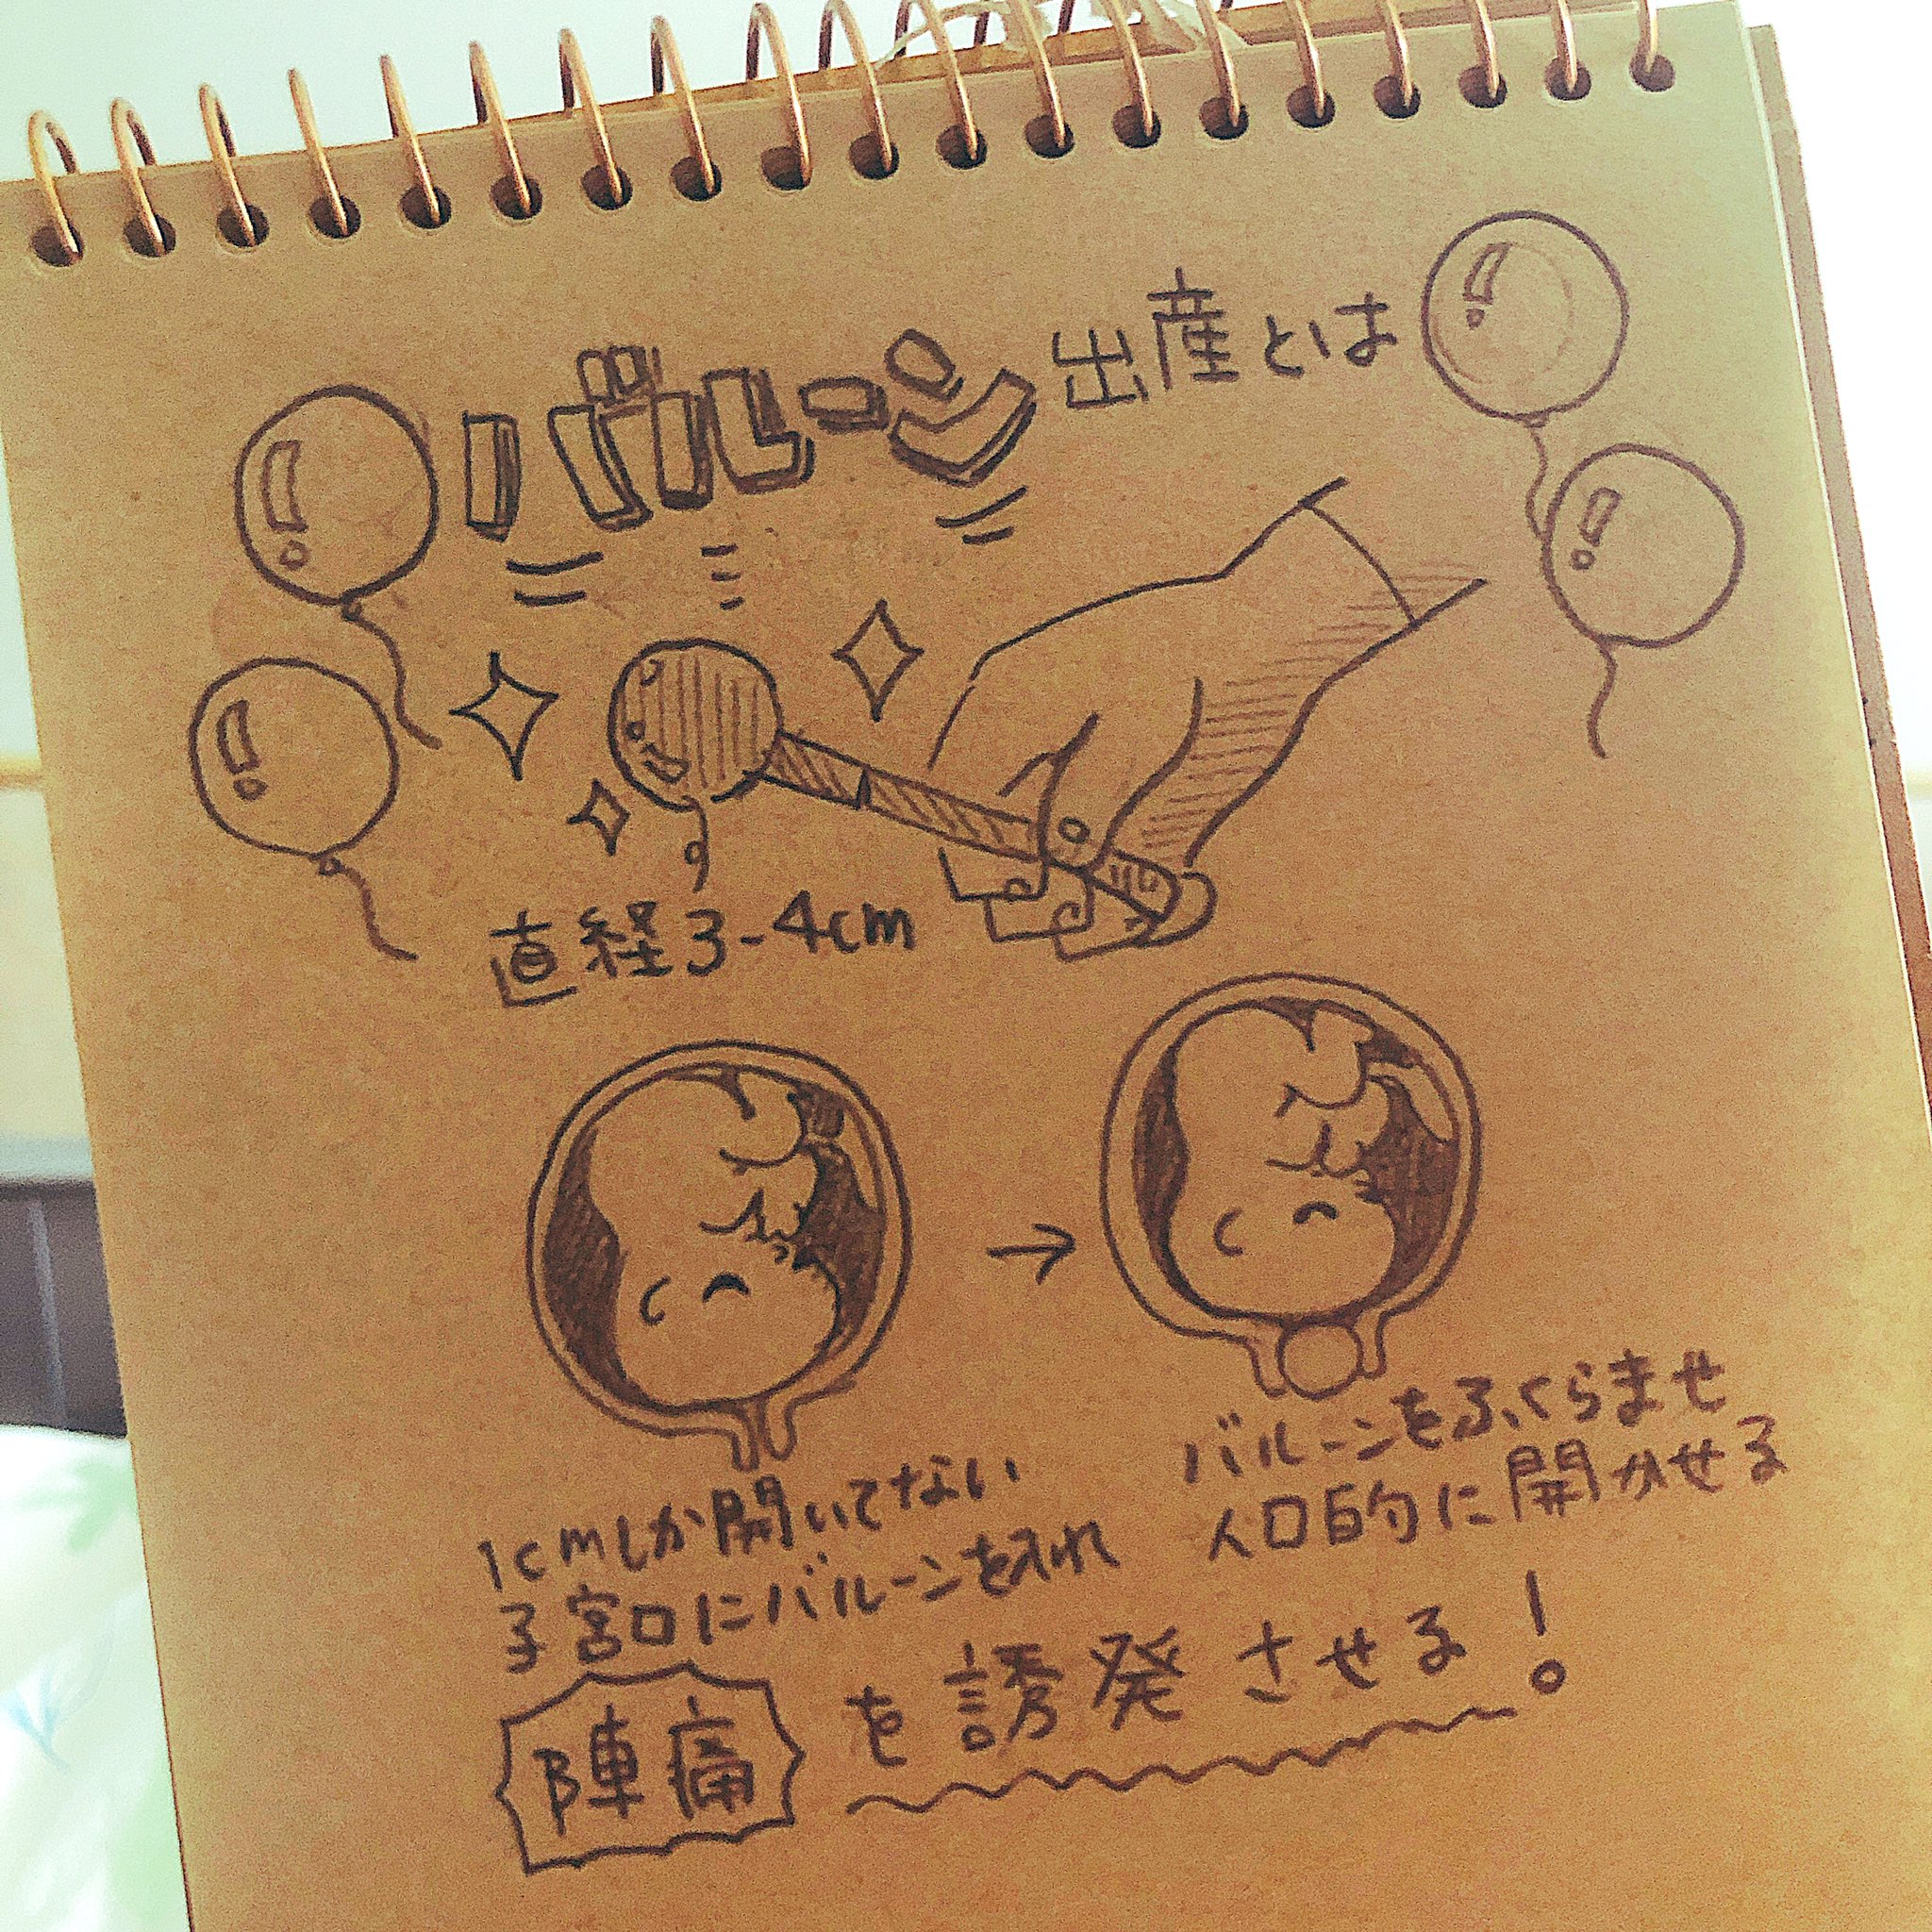 バルーン出産とは
直経3-4cm
1cmしか開いてない
子宮口にバルーンを入れ
バルーンをふくらませ
人口的に開かせる
陣痛を誘発させる!